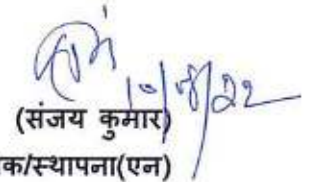 10/8/22
(संजय कुमार)
क/स्थापना(एन)